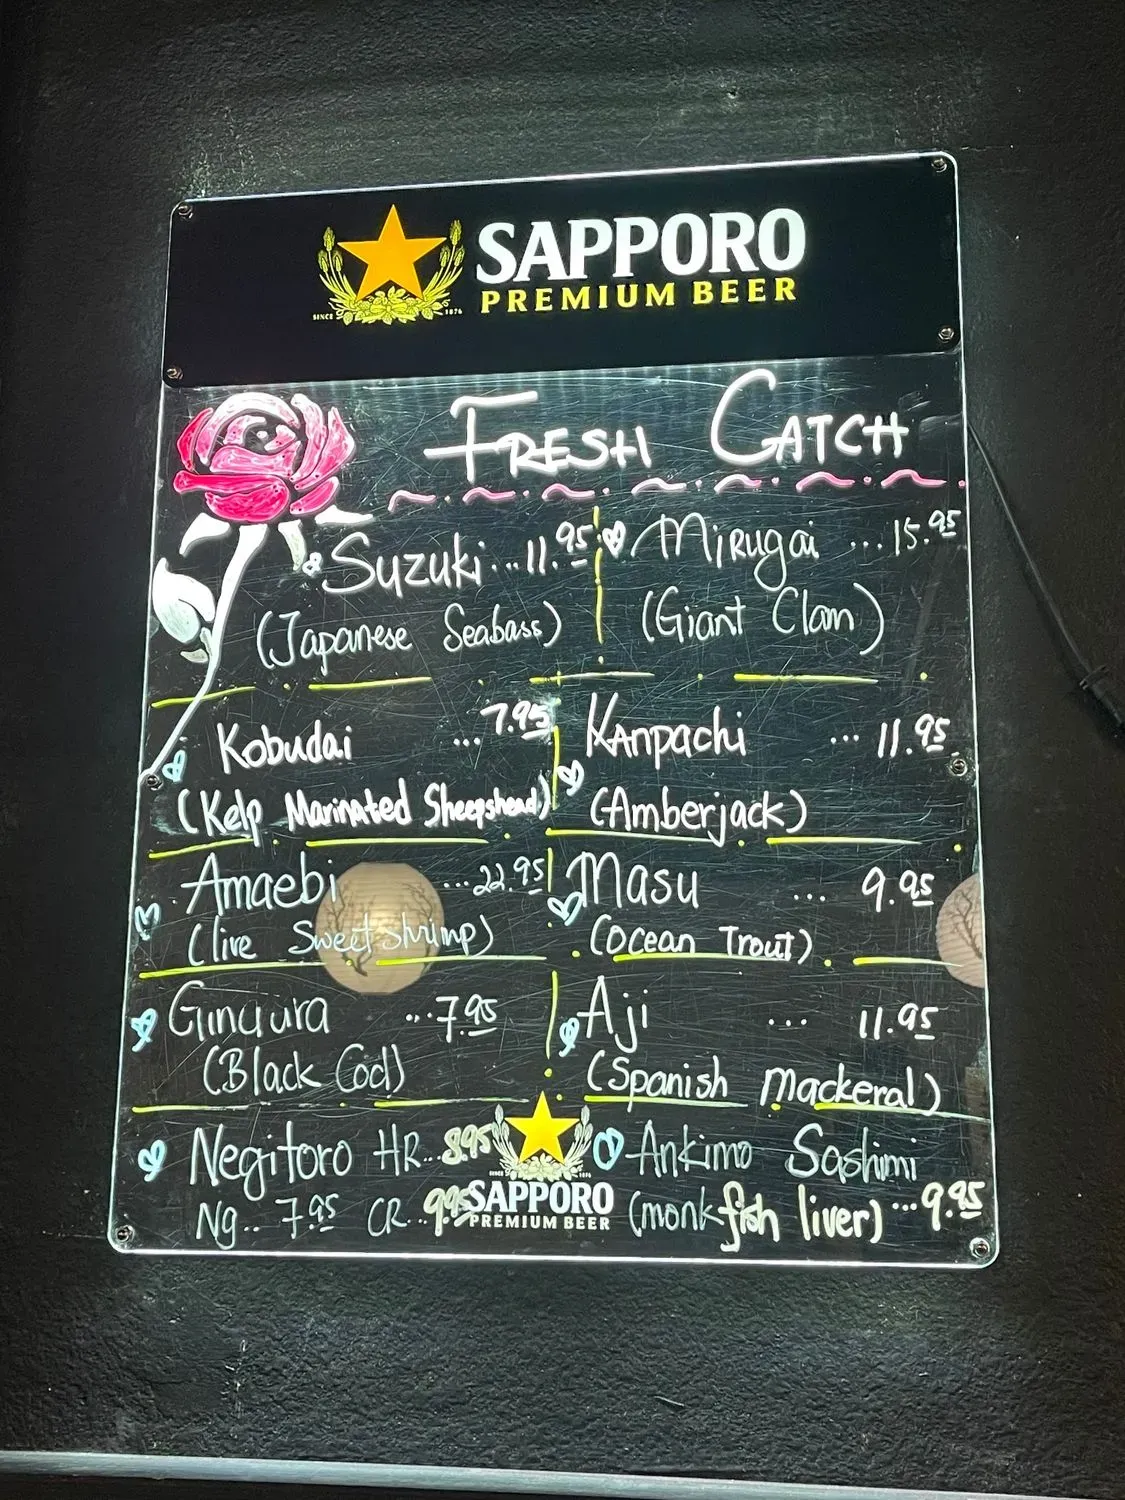 SAPPORO
PREMIUM BEER
SINCE 1876
FRESH CATCH
Suzuki ... 11.95
(Japanese Seabass)
Mirugai ... 15.95
(Giant Clam)
Kobudai ... 7.95
(Kelp Marinated Sheepshead)
Kanpachi ... 11.95
(Amberjack)
Amaebi ... 22.95
(live Sweet shrimp)
Masu ... 9.95
(Ocean Trout)
Gindura ... 7.95
(Black Cod)
Aji ... 11.95
(Spanish Mackeral)
Negitoro HR.. 8.95
Ng.. 7.95 CR.. 9.95
Ankimo Sashimi
(monkfish liver) ... 9.95
SINCE 1876
SAPPORO
PREMIUM BEER